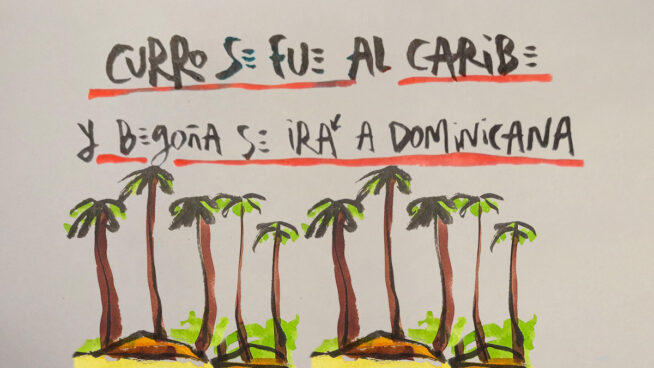 CURRO SE FUE AL CARIBE
Y BEGOÑA SE IRÁ A DOMINICANA